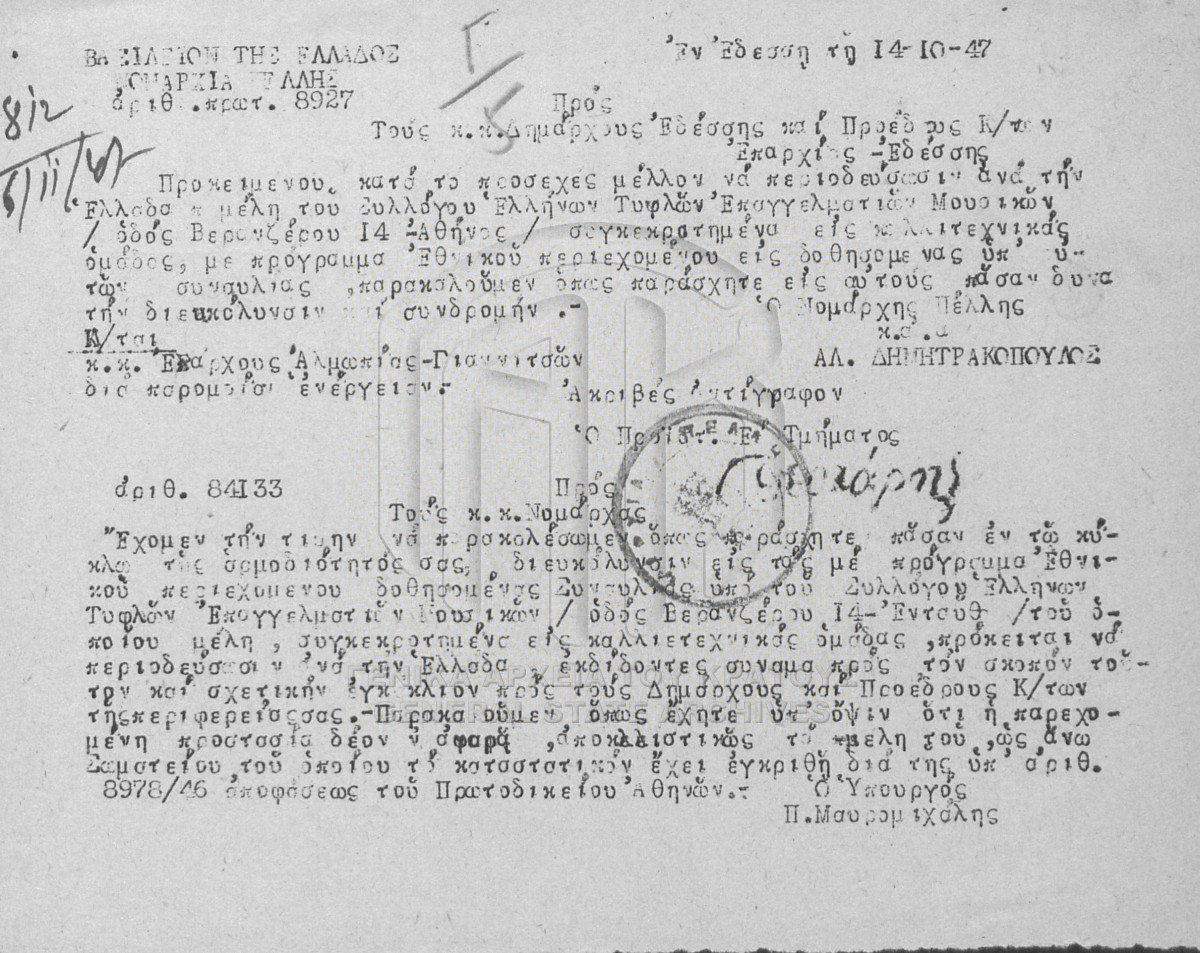 ΒΑΣΙΛΕΙΟΝ ΤΗΣ ΕΛΛΑΔΟΣ
ΝΟΜΑΡΧΙΑ ΠΕΛΛΗΣ
ἀριθ.πρωτ. 8927
Ἐν Ἐδεσση τῇ I4-IO-47
Πρός
Τούς κ.κ.Δημάρχους Ἐδέσσης καί Προέδρους Κ/των
Ἐπαρχίας -Ἐδέσσης
Προκειμενου κατά το προσεχες μέλλον νά περιοδεύσωσιν ἀνά τήν
Ἑλλαδα μέλη τοῦ Συλλόγου Ἑλλήνων Τυφλῶν Ἐπαγγελματιῶν Μουσικῶν
/ ὁδός Βερανζέρου I4 -Ἀθήνας/ συγκεκροτημένα εἰς καλλιτεχνικάς
ὁμάδας, με πρόγραμμα Ἐθνικοῦ περιεχομένου εἰς δοθησομενας ὑπ' αὐ-
τῶν συναυλίας ,παρακαλοῦμεν ὅπως παράσχητε εἰς αὐτούς πᾶσαν δυνα
τήν διευκόλυνσιν καί συνδρομήν .-
Ὁ Νομάρχης Πέλλης
κ.ἀ.α
Κ/ται
κ.κ. Ἐπάρχους Ἀλμωπίας-Γιαννιτσῶν
ΑΛ. ΔΗΜΗΤΡΑΚΟΠΟΥΛΟΣ
διά παρομοίαν ἐνέργειαν.-
Ἀκριβές Ἀντίγραφον
Ὁ Προϊστ. Τμήματος
ἀριθ. 84I33
Πρός
Τούς κ.κ.Νομάρχας
Ἔχομεν τήν τιμην νά παρακαλέσωμεν ὅπως παράσχητε πᾶσαν ἐν τῷ κύ-
κλω τῆς ἁρμοδιότητός σας, διευκόλυνσιν εἰς τάς μέ πρόγραμμα Ἐθνι-
κοῦ περιεχομενου δοθησομένας Συναυλίας ὑπό τοῦ Συλλόγου Ἑλλήνων
Τυφλῶν Ἐπαγγελματιῶν Μουσικῶν / ὁδός Βερανζέρου I4-Ἐνταυθ /τοῦ ὁ-
ποίου μέλη , συγκεκροτημένα εἰς καλλιετεχνικάς ὁμάδας ,πρόκειται νά
περιοδεύσωσιν ἀνά τήν Ἑλλαδα , ἐκδίδοντες συναμα πρός τόν σκοπόν τοῦ-
τον καί σχετικήν ἐγκύκλιον πρός τούς Δημάρχους καί Προέδρους Κ/των
τῆςπεριφερείαςσας.-Παρακαλοῦμεν ὅπως ἔχητε ὑπ' ὄψιν ὅτι ἡ παρεχο-
μένη προστασία δέον ν' ἀφορᾷ ,ἀποκλειστικῶς τά μελη του ,ὡς ἄνω
Σωματείου τοῦ ὁποίου τό καταστατικόν ἔχει ἐγκριθῆ διά της ὑπ' ἀριθ.
8978/46 ἀποφάσεως τοῦ Πρωτοδικείου Ἀθηνῶν.-
Ὁ Ὑπουργός
Π.Μαυρομιχάλης
ΓΕΝΙΚΑ ΑΡΧΕΙΑ ΤΟΥ ΚΡΑΤΟΥΣ
GENERAL STATE ARCHIVES